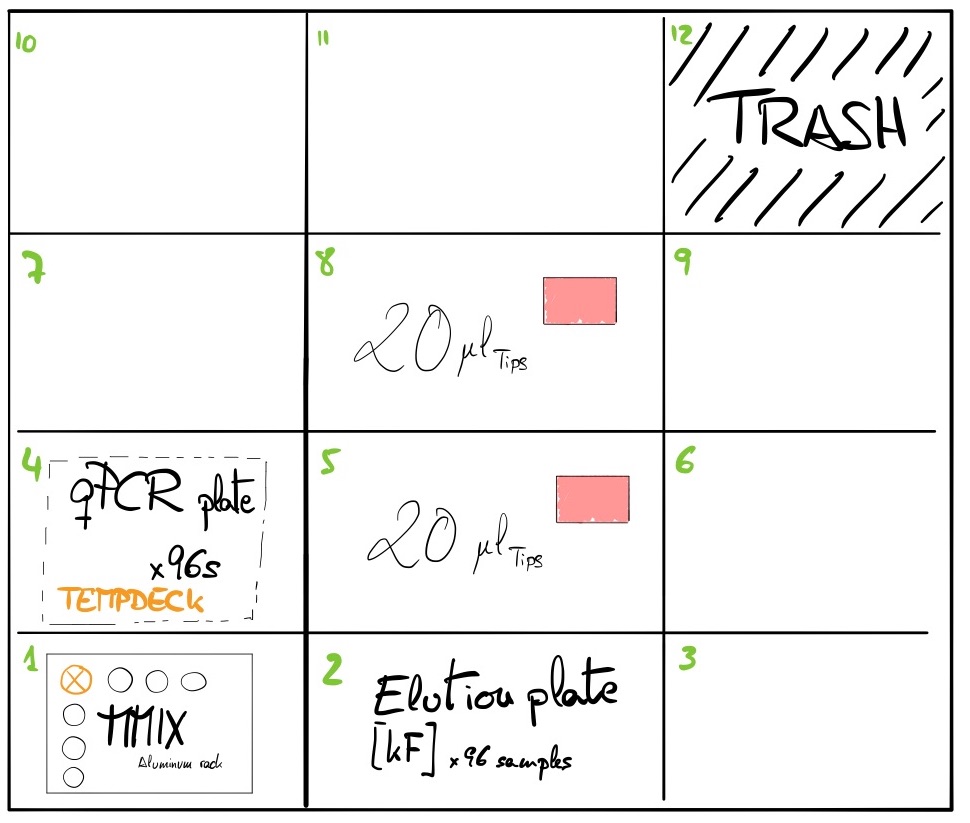 10
11
12
TRASH
7
8
20 µl Tips
9
4
qPCR plate
x96s
TEMPDECK
5
20 µl Tips
6
1
MMIX
Aluminum rack
2
Elution plate
[kF] x96 samples
3